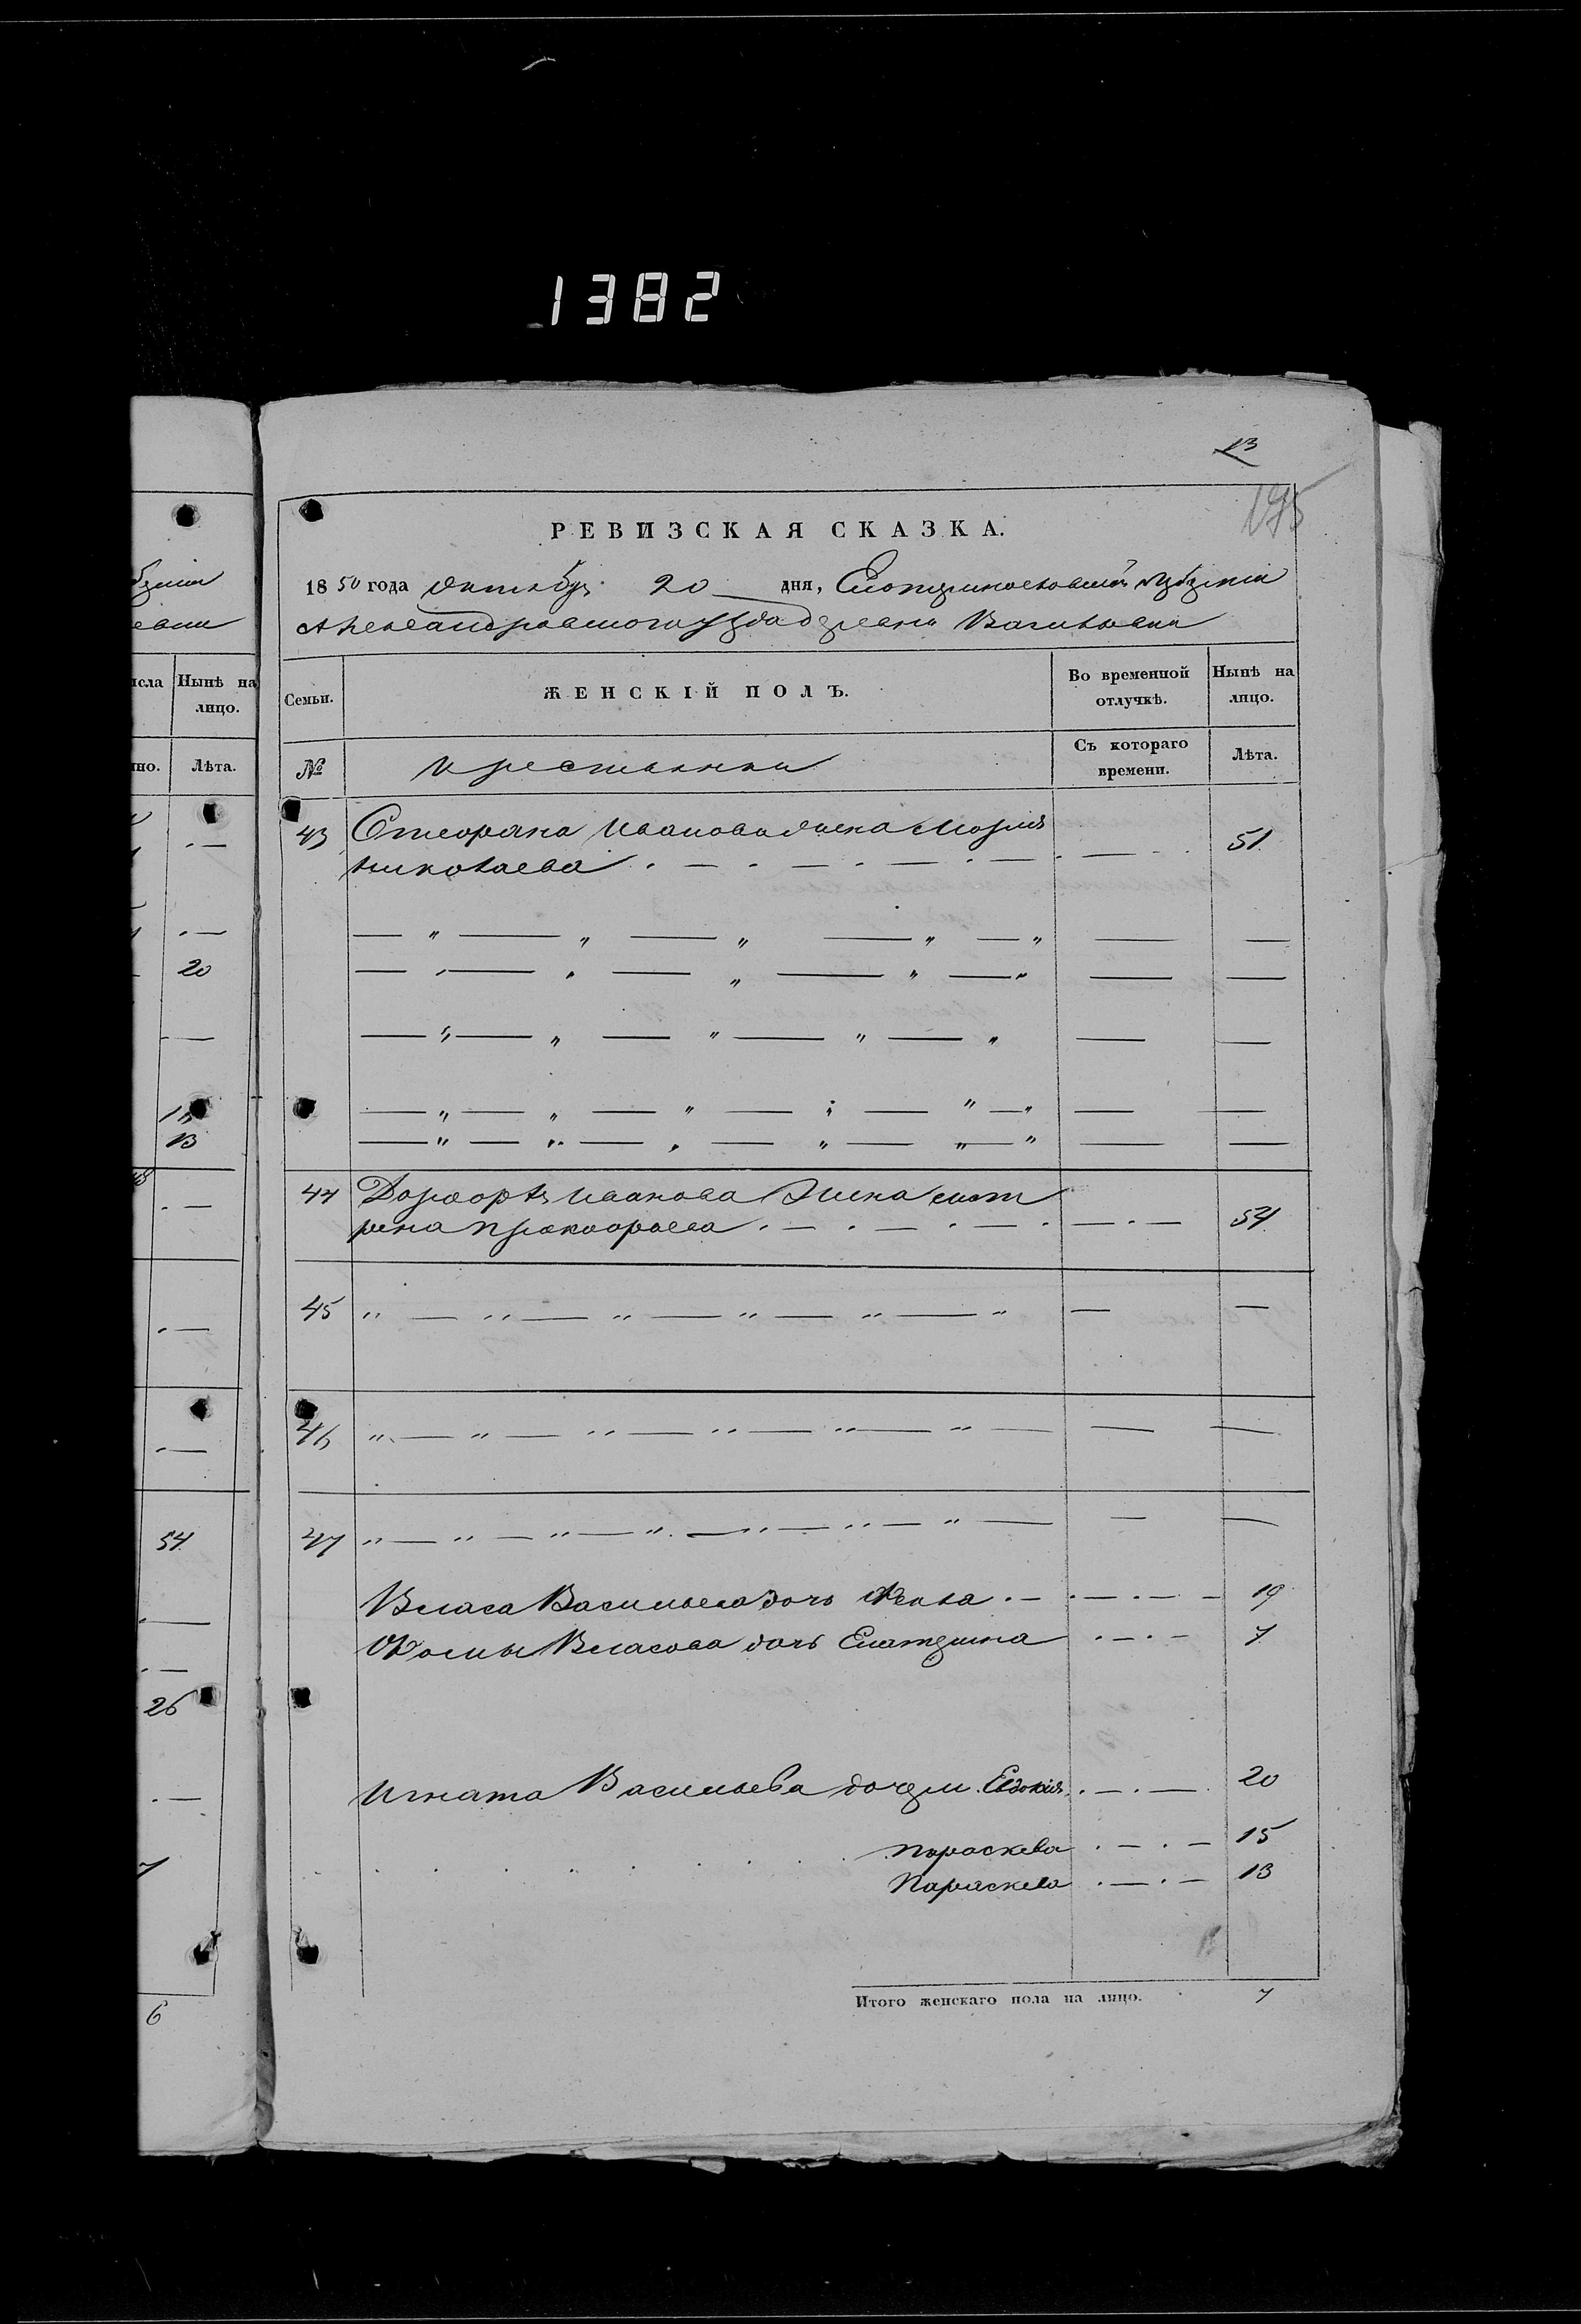 1382
13
195
РЕВИЗСКАЯ СКАЗКА.
1850 года Октября 20 дня, Екатеринославской Губерніи
Александровского уезда деревни Васильевки
Семьи.
ЖЕНСКІЙ ПОЛЪ.
Во временной отлучкѣ.
Нынѣ на лицо.
№
крестьянки
Съ котораго времени.
Лѣта.
43 Стефана Иванова жена Марія
Николаева . — . — . — . — . — 51
44 Дорофея Иванова жена мат
рена Прокофьева . — . — . — . — . — 54
45 " — " — " — " — " — " — —
46 " — " — " — " — " — " — — —
47 " — " — " — " — " — " — " — — —
Власа Васильева дочь Фекла . — . — . — 19
Фомы Власова дочь Екатерина . — . — 7
Игната Васильева дочери Евдокия . — . — 20
Параскева . — . — 15
Параскева . — . — 13
Итого женскаго пола на лицо. 7
бернии
евни
исла
Нынѣ на лицо.
но.
Лѣта.
20
13
54
26
7
6